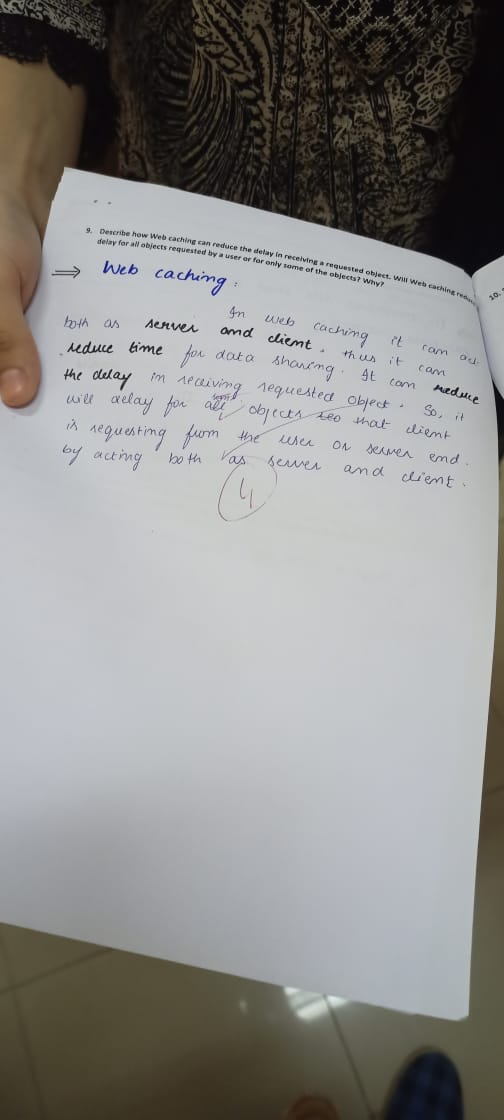 9. Describe how Web caching can reduce the delay in receiving a requested object. Will Web caching reduce
delay for all objects requested by a user or for only some of the objects? Why?
10.
⇒ Web caching :
In web caching it can act
both as server and client. thus it can
reduce time for data sharing. It can reduce
the delay in receiving requested object. So, it
will delay for all objects that client
is requesting from the user or server end.
by acting both as server and client.
4